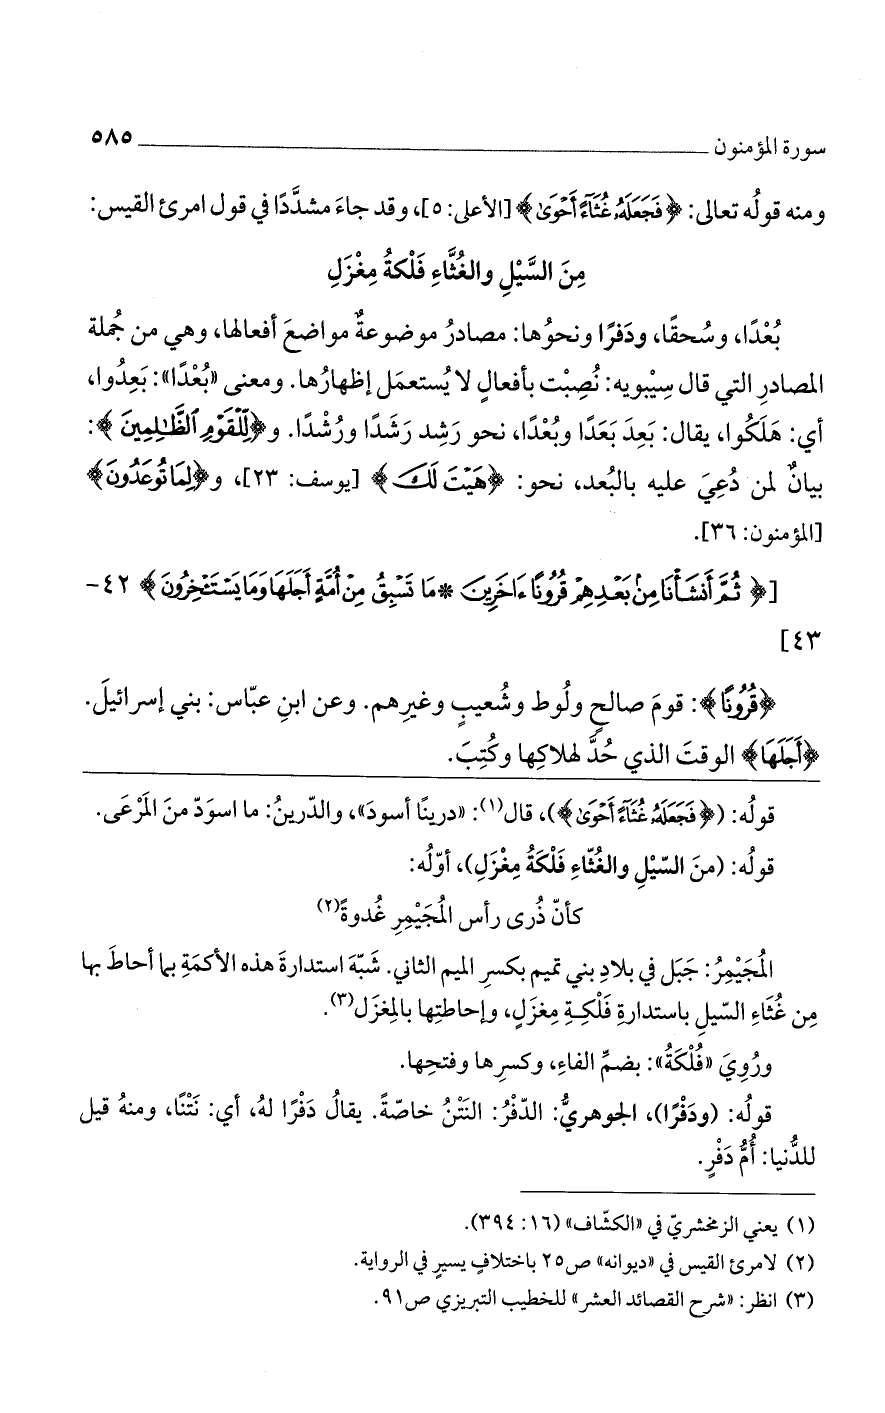 سورة المؤمنون ٥٨٥
ومنه قولُه تعالى: ﴿فَجَعَلَهُۥ غُثَآءً أَحْوَىٰ﴾ [الأعلى: ٥]، وقد جاءَ مشدَّدًا في قول امرئ القيس:
مِنَ السَّيْلِ والغُثَّاءِ فَلْكةُ مِغْزَلِ
بُعْدًا، وسُحقًا، ودَفرًا ونحوُها: مصادرُ موضوعةٌ مواضعَ أفعالها، وهي من جُملة
المصادرِ التي قال سِيْبويه: نُصِبْت بأفعالٍ لا يُستعمَل إظهارُها. ومعنى «بُعْدًا»: بَعِدُوا،
أي: هَلَكُوا، يقال: بَعِدَ بَعَدًا وبُعْدًا، نحو رَشِد رَشَدًا ورُشْدًا. و﴿لِّلْقَوْمِ ٱلظَّٰلِمِينَ﴾:
بيانٌ لمن دُعِيَ عليه بالبُعد، نحو: ﴿هَيْتَ لَكَ﴾ [يوسف: ٢٣]، و﴿لِمَا تُوعَدُونَ﴾
[المؤمنون: ٣٦].
[﴿ثُمَّ أَنشَأْنَا مِنۢ بَعْدِهِمْ قُرُونًا ءَاخَرِينَ * مَا تَسْبِقُ مِنْ أُمَّةٍ أَجَلَهَا وَمَا يَسْتَـْٔخِرُونَ﴾ ٤٢-
٤٣]
﴿قُرُونًا﴾: قومَ صالحٍ ولُوط وشُعيبٍ وغيرِهم. وعن ابنِ عبّاس: بني إسرائيلَ.
﴿أَجَلَهَا﴾ الوقتَ الذي حُدَّ لهلاكِها وكُتِبَ.
قولُه: (﴿فَجَعَلَهُۥ غُثَآءً أَحْوَىٰ﴾)، قال(١): «درينًا أسودَ»، والدّرينُ: ما اسوَدّ منَ المَرْعَى.
قولُه: (منَ السّيْلِ والغُثّاءِ فَلْكَةُ مِغْزَلِ)، أوّلُه:
كأنّ ذُرى رأس المُجَيْمِرِ غُدوةً(٢)
المُجَيْمِرُ: جَبَل في بلادِ بني تميم بكسرِ الميم الثاني. شَبّهَ استدارةَ هذه الأكمَةِ بما أحاطَ بها
مِن غُثَاءِ السّيلِ باستدارةِ فَلْكِةِ مِغزَلٍ، وإحاطتِها بالمِغزَل(٣).
ورُوِيَ «فُلْكَةُ»: بضمِّ الفاءِ، وكسرِها وفتحِها.
قولُه: (ودَفْرًا)، الجوهريُّ: الدّفْرُ: النَتْنُ خاصّةً. يقالُ دَفْرًا لهُ، أي: نَتْنًا، ومنهُ قيل
للدُّنيا: أُمُّ دَفْرٍ.
(١) يعني الزمخشريّ في «الكشّاف» (١٦: ٣٩٤).
(٢) لامرئ القيس في «ديوانه» ص٢٥ باختلافٍ يسيرٍ في الرواية.
(٣) انظر: «شرح القصائد العشر» للخطيب التبريزي ص٩١.